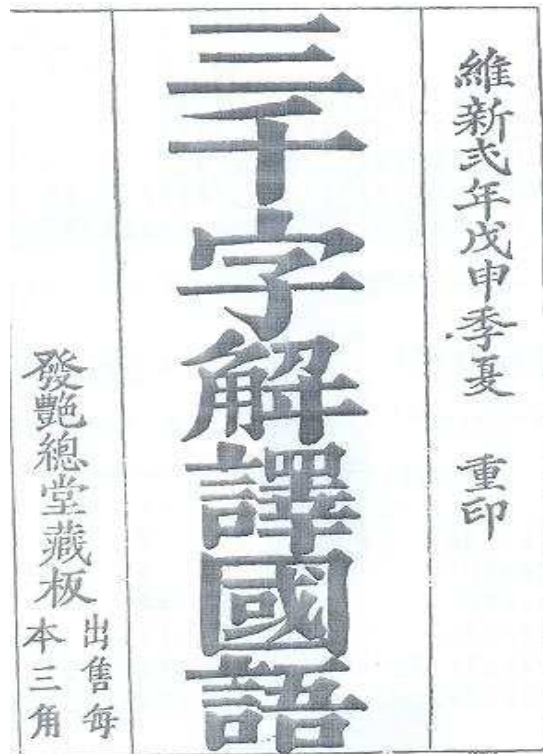 維新弍年戊申季夏 重印
三千字解譯國語
發艶總堂藏板
出售每
本三角